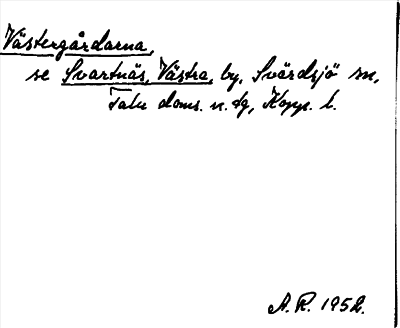 Västergårdarna,
se Svartnäs, Västra, by, Svärdsjö sn,
Falu doms. n. tg, Kopp. l.
A. R. 1952.